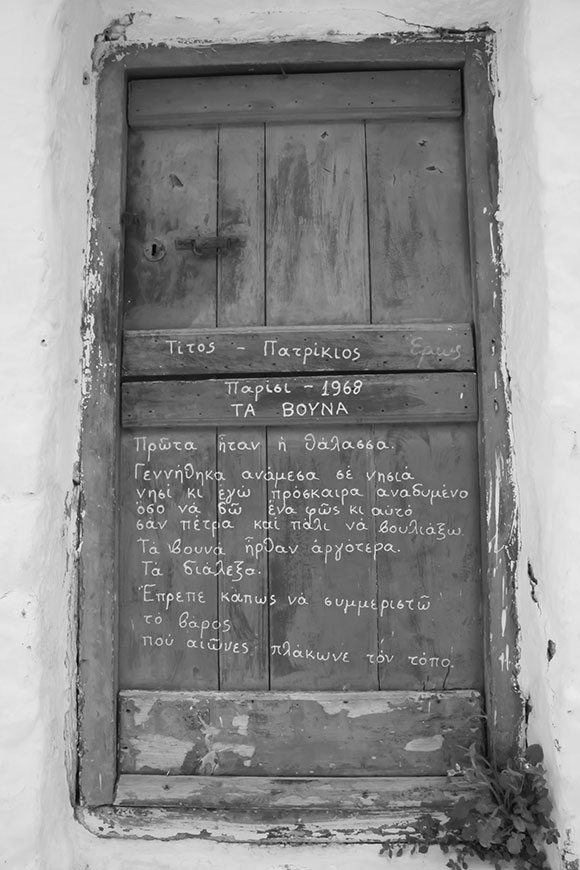 Τίτος - Πατρίκιος
Παρίσι - 1968
ΤΑ ΒΟΥΝΑ
Πρῶτα ἦταν ἡ θάλασσα.
Γεννήθηκα ἀνάμεσα σέ νησιά
νησί κι ἐγώ πρόσκαιρα ἀναδυμένο
ὅσο νά δῶ ἕνα φῶς κι αὐτό
σάν πέτρα καί πάλι νά βουλιάξω.
Τά βουνά ἦρθαν ἀργότερα.
Τά διάλεξα.
Ἔπρεπε κάπως νά συμμεριστῶ
τό βάρος
πού αἰῶνες πλάκωνε τόν τόπο.